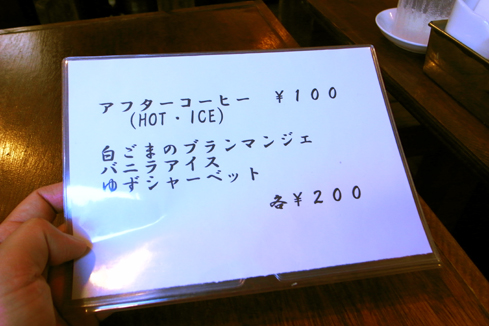 アフターコーヒー ￥１００
(HOT・ICE)
白ごまのブランマンジェ
バニラアイス
ゆずシャーベット
各￥２００